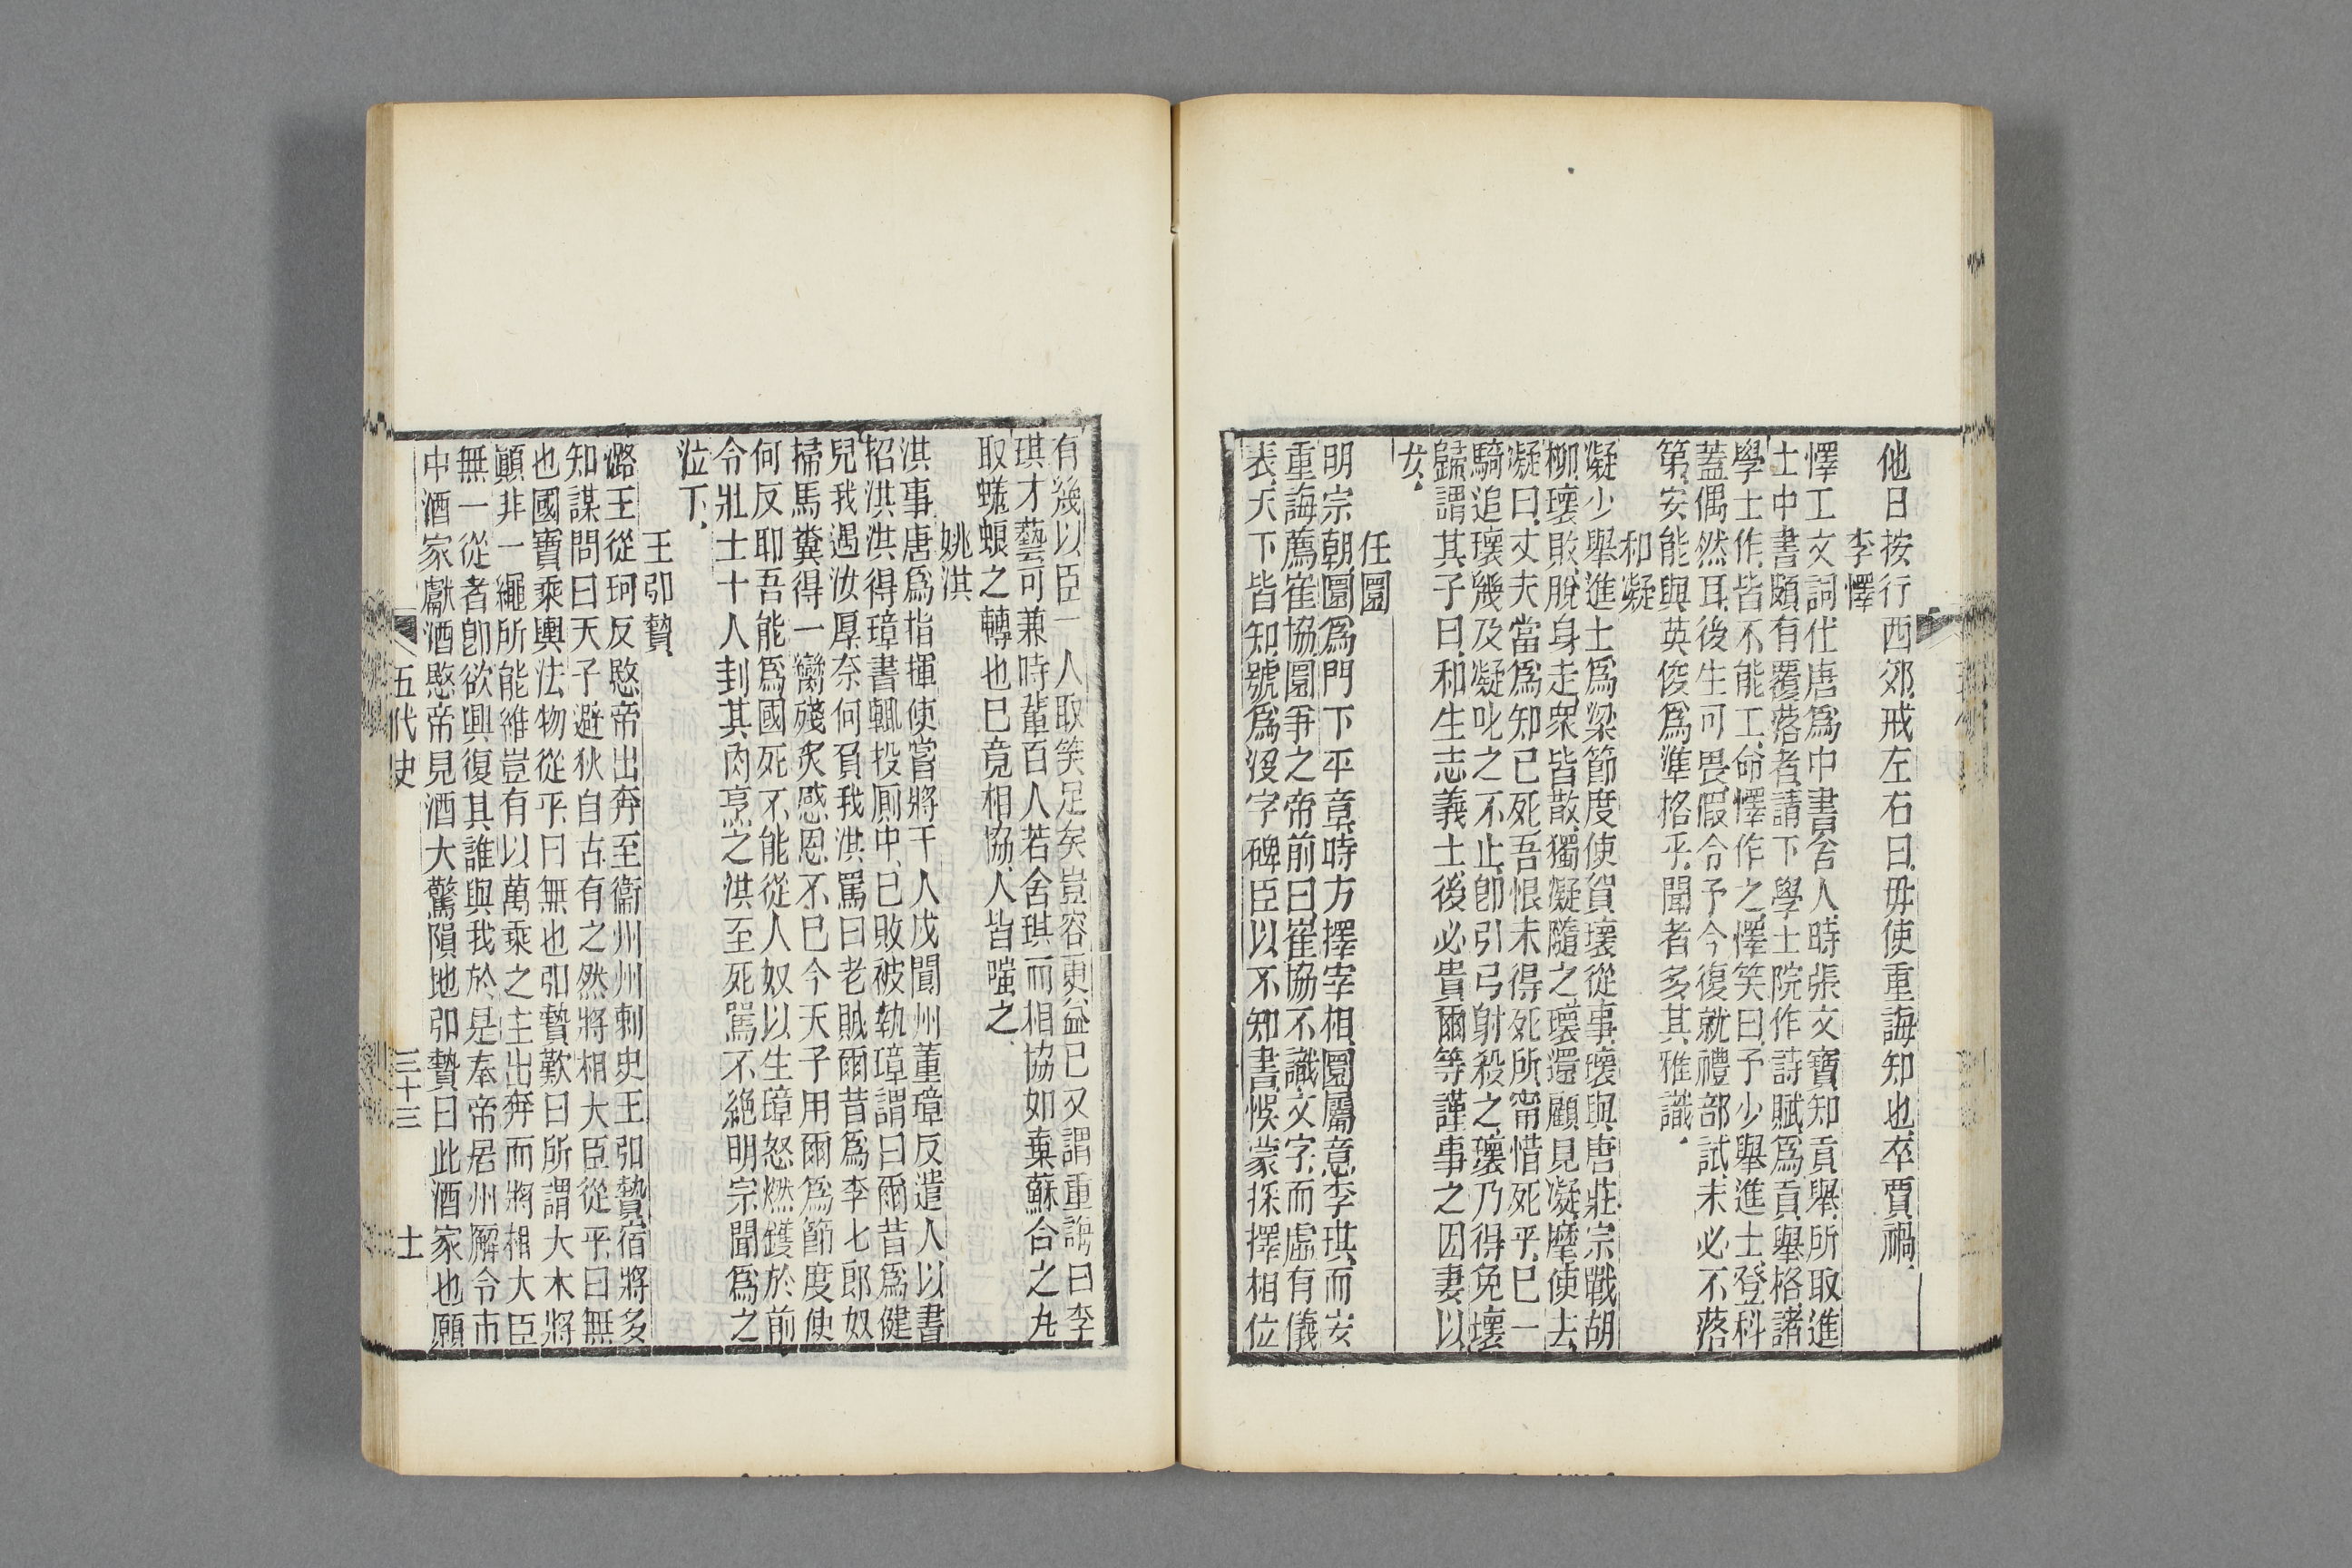 他日按行西郊戒左右曰毋使重誨知也卒賈禍
李懌
懌工文詞仕唐爲中書舍人時張文寶知貢舉所取進
士中書頗有覆落者請下學士院作詩賦爲貢舉格諸
學士作皆不能工命懌作之懌笑曰予少舉進士登科
蓋偶然耳後生可畏假令予今復就禮部試未必不落
第安能與英俊爲準格乎聞者多其雅識
和凝
凝少舉進士爲梁節度使賀瓌從事瓌與唐莊宗戰胡
柳瓌敗脫身走衆皆散獨凝隨之瓌還顧見凝麾使去
凝曰丈夫當爲知已死吾恨未得死所甯惜死乎巳一
騎追瓌幾及凝叱之不止卽引弓射殺之瓌乃得免瓌
歸謂其子曰和生志義士後必貴爾等謹事之因妻以
女
任圜
明宗朝圜爲門下平章時方擇宰相圜屬意李琪而安
重誨薦崔協圜爭之帝前曰崔協不識文字而虛有儀
表天下皆知號爲沒字碑臣以不知書悞蒙採擇相位
有幾以臣一人取笑足矣豈容更益巳又謂重誨曰李
琪才藝可兼時輩百人若舍琪而相協如棄蘇合之丸
取蜣蜋之轉也巳竟相協人皆嗤之
姚洪
洪事唐爲指揮使嘗將千人戍閬州董璋反遣人以書
招洪洪得璋書輒投厠中巳敗被執璋謂曰爾昔爲健
兒我遇汝厚奈何負我洪罵曰老賊爾昔爲李七郎奴
掃馬糞得一臠殘炙感恩不巳今天子用爾爲節度使
何反耶吾能爲國死不能從人奴以生璋怒燃鑊於前
令壯士十人刲其肉烹之洪至死罵不絶明宗聞爲之
泣下
王弘贄
潞王從珂反愍帝出奔至衞州州刺史王弘贄宿將多
知謀問曰天子避狄自古有之然將相大臣從乎曰無
也國寶乘輿法物從乎曰無也弘贄歎曰所謂大木將
顚非一繩所能維豈有以萬乘之主出奔而將相大臣
無一從者卽欲興復其誰與我於是奉帝居州廨令市
中酒家獻酒愍帝見酒大驚隕地弘贄曰此酒家也願
五代史 三十三 十